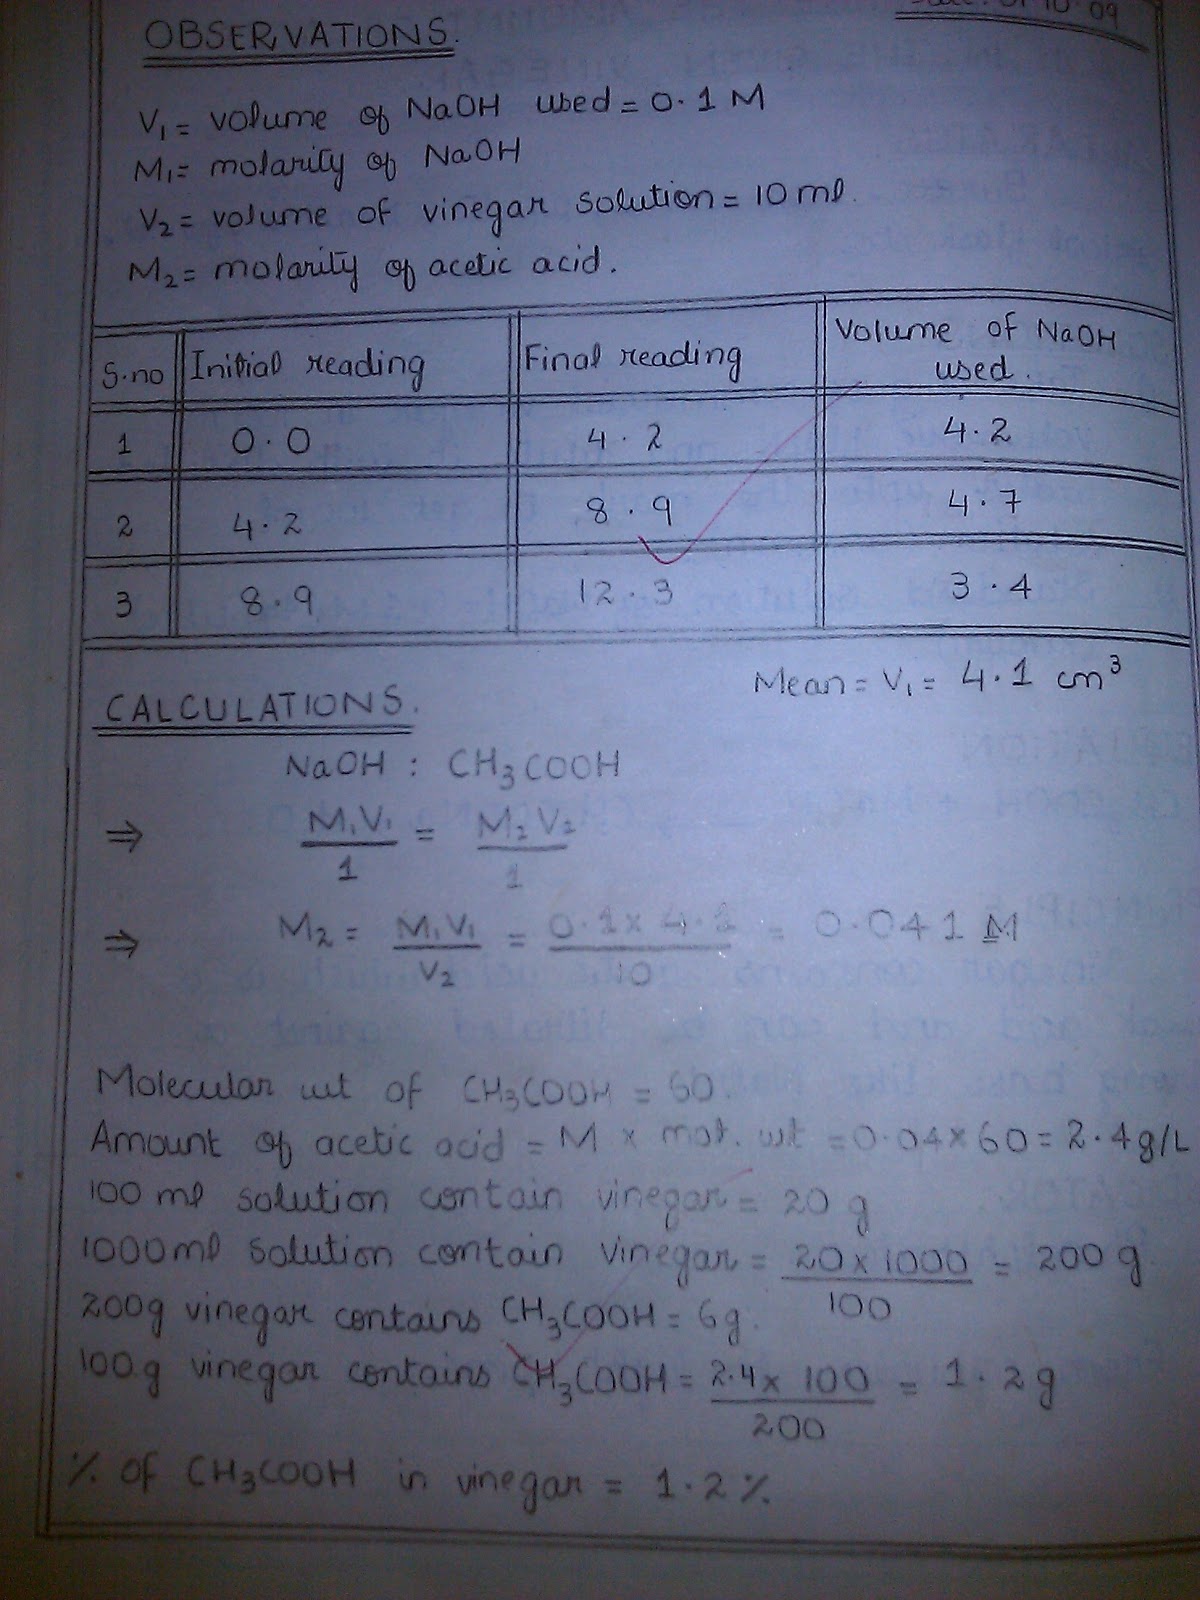 10 09
OBSERVATIONS.
V₁ = volume of NaOH used = 0.1 M
M₁ = molarity of NaOH
V₂ = volume of vinegar solution = 10 ml.
M₂ = molarity of acetic acid.
S.no Initial reading Final reading Volume of NaOH used.
1 0.0 4.2 4.2
2 4.2 8.9 4.7
3 8.9 12.3 3.4
Mean = V₁ = 4.1 cm³
CALCULATIONS.
NaOH : CH₃COOH
⇒ M₁V₁/1 = M₂V₂/1
⇒ M₂ = M₁V₁/V₂ = 0.1 x 4.1/10 = 0.041 M
Molecular wt of CH₃COOH = 60.
Amount of acetic acid = M x mol. wt = 0.04 x 60 = 2.4 g/L
100 ml solution contain vinegar = 20 g
1000 ml solution contain vinegar = 20 x 1000/100 = 200 g
200g vinegar contains CH₃COOH = 6g.
100 g vinegar contains CH₃COOH = 2.4 x 100/200 = 1.2 g
% of CH₃COOH in vinegar = 1.2 %.